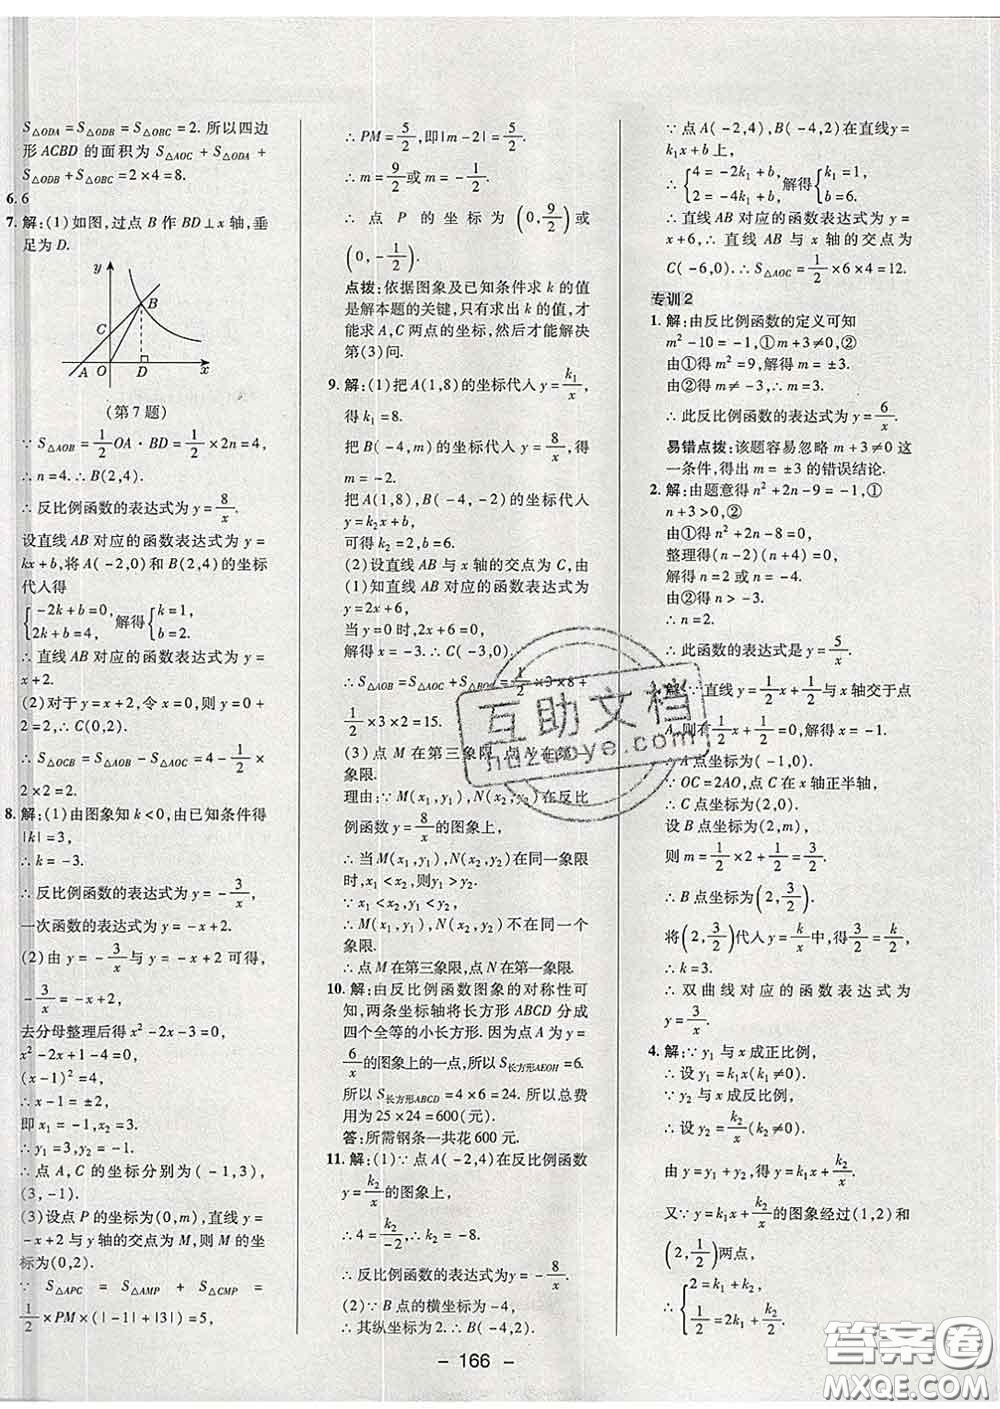 S△ODA = S△ODB = S△OBC = 2. 所以四边
形 ACBD 的面积为 S△AOC + S△ODA +
S△ODB + S△OBC = 2×4 = 8.
6. 6
7. 解:(1)如图,过点 B 作 BD⊥x 轴,垂
足为 D.
y
B
C
A O D x
(第 7 题)
∵ S△AOB = 1/2 OA · BD = 1/2 × 2n = 4,
∴ n = 4. ∴ B(2,4).
∴ 反比例函数的表达式为 y = 8/x.
设直线 AB 对应的函数表达式为 y =
kx + b,将 A(-2,0)和 B(2,4)的坐标
代人得
{-2k + b = 0, 2k + b = 4, 解得 {k = 1, b = 2.
∴ 直线 AB 对应的函数表达式为 y =
x + 2.
(2)对于 y = x + 2,令 x = 0,则 y = 0 +
2 = 2,∴ C(0,2).
∴ S△OCB = S△AOB - S△AOC = 4 - 1/2 ×
2×2 = 2.
8. 解:(1)由图象知 k < 0,由已知条件得
|k| = 3,
∴ k = -3.
∴ 反比例函数的表达式为 y = -3/x,
一次函数的表达式为 y = -x + 2.
(2)由 y = -3/x 与 y = -x + 2 可得,
-3/x = -x + 2,
去分母整理后得 x² - 2x - 3 = 0,
x² - 2x + 1 - 4 = 0,
(x - 1)² = 4,
∴ x - 1 = ±2,
即 x₁ = -1, x₂ = 3.
∴ y₁ = 3, y₂ = -1.
∴ 点 A, C 的坐标分别为(-1,3),
(3,-1).
(3)设点 P 的坐标为(0,m),直线 y =
-x + 2 与 y 轴的交点为 M,则 M 的坐
标为(0,2).
∵ S△APC = S△AMP + S△CMP =
1/2 × PM × (|-1| + |3|) = 5,
∴ PM = 5/2,即|m - 2| = 5/2,
∴ m = 9/2 或 m = -1/2.
∴ 点 P 的坐标为 (0, 9/2) 或
(0, -1/2).
点拨:依据图象及已知条件求 k 的值
是解本题的关键,只有求出 k 的值,才
能求 A,C 两点的坐标,然后才能解决
第(3)问.
9. 解:(1)把 A(1,8)的坐标代人 y = k₁/x,
得 k₁ = 8.
把 B(-4,m)的坐标代人 y = 8/x,得
m = -2.
把 A(1,8),B(-4,-2)的坐标代人
y = k₂x + b,
可求得 k₂ = 2,b = 6.
(2)设直线 AB 与 x 轴的交点为 C,由
(1)知直线 AB 对应的函数表达式为
y = 2x + 6,
当 y = 0 时,2x + 6 = 0,
解得 x = -3. ∴ C(-3,0).
∴ S△AOB = S△AOC + S△BOC = 1/2 × 3 × 8 +
1/2 × 3 × 2 = 15.
(3)点 M 在第三象限,点 N 在第一
象限.
理由:∵ M(x₁,y₁),N(x₂,y₂)在反比
例函数 y = 8/x 的图象上,
∴ 当 M(x₁,y₁),N(x₂,y₂)在同一象限
时,x₁ < x₂,则 y₁ > y₂.
∵ x₁ < x₂,y₁ < y₂,
∴ M(x₁,y₁),N(x₂,y₂)不在同一个
象限.
∴ 点 M 在第三象限,点 N 在第一象限.
10. 解:由反比例函数图象的对称性可
知,两条坐标轴将长方形 ABCD 分成
四个全等的小长方形. 因为点 A 为 y =
6/x 的图象上的一点,所以 S长方形AEOH = 6.
所以 S长方形ABCD = 4×6 = 24. 所以总费
用为 25×24 = 600(元).
答:所需钢条一共花 600 元.
11. 解:(1)∵ 点 A(-2,4)在反比例函数
y = k₂/x 的图象上,
∴ 4 = k₂/-2,∴ k₂ = -8.
∴ 反比例函数的表达式为 y = -8/x.
(2)∵ B 点的横坐标为 -4,
∴ 其纵坐标为 2. ∴ B(-4,2).
∵ 点 A(-2,4),B(-4,2)在直线 y =
k₁x + b 上,
∴ {4 = -2k₁ + b, 2 = -4k₁ + b, 解得 {k₁ = 1, b = 6.
∴ 直线 AB 对应的函数表达式为 y =
x + 6,∴ 直线 AB 与 x 轴的交点为
C(-6,0). ∴ S△AOC = 1/2 × 6 × 4 = 12.
专训 2
1. 解:由反比例函数的定义可知
m² - 10 = -1,① m + 3 ≠ 0,②
由①得 m² = 9,解得 m = ±3.
由②得 m ≠ -3,∴ m = 3.
∴ 此反比例函数的表达式为 y = 6/x.
易错点拨:该题容易忽略 m + 3 ≠ 0 这
一条件,得出 m = ±3 的错误结论.
2. 解:由题意得 n² + 2n - 9 = -1,①
n + 3 > 0,②
由①得 n² + 2n - 8 = 0,
整理得(n - 2)(n + 4) = 0,
解得 n = 2 或 n = -4,
由②得 n > -3.
∴ n = 2.
∴ 此函数的表达式是 y = 5/x.
∵ 直线 y = 1/2 x + 1/2 与 x 轴交于点
A,则有 1/2 x + 1/2 = 0,解得 x = -1.
∴ A 点坐标为(-1,0).
∵ OC = 2AO,点 C 在 x 轴正半轴,
∴ C 点坐标为(2,0).
设 B 点坐标为(2,m),
则 m = 1/2 × 2 + 1/2 = 3/2,
∴ B 点坐标为 (2, 3/2).
将 (2, 3/2) 代人 y = k/x 中,得 3/2 = k/2,
∴ k = 3.
∴ 双曲线对应的函数表达式为
y = 3/x.
4. 解:∵ y₁ 与 x 成正比例,
∴ 设 y₁ = k₁x(k₁ ≠ 0).
∵ y₂ 与 x 成反比例,
∴ 设 y₂ = k₂/x (k₂ ≠ 0).
由 y = y₁ + y₂,得 y = k₁x + k₂/x.
又∵ y = k₁x + k₂/x 的图象经过(1,2)和
(2, 1/2) 两点,
∴ {2 = k₁ + k₂, 1/2 = 2k₁ + k₂/2.
- 166 -
互助文档
hdzuoye.com
答案圈
MXQE.COM